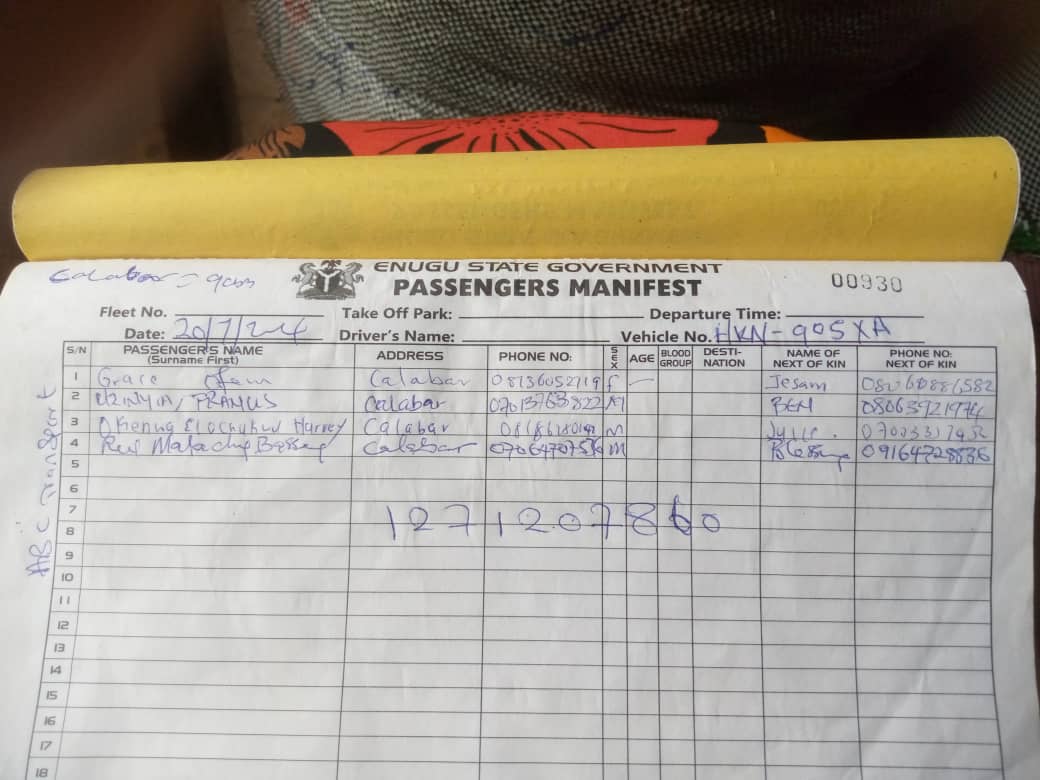 Calabar = 9am
ENUGU STATE GOVERNMENT
PASSENGERS MANIFEST
00930
Fleet No. Take Off Park: Departure Time:
Date: 20/7/2024 Driver's Name: Vehicle No. HKN-905XA
S/N PASSENGER'S NAME (Surname First) ADDRESS PHONE NO: SEX AGE BLOOD GROUP DESTI-NATION NAME OF NEXT OF KIN PHONE NO: NEXT OF KIN
1 Grace Ofem Calabar 08136052119 f — Jesam
2 Calabar 07013763822 M BEN
3 Harvey Calabar M
4 Rev Malachy Bassey Calabar M Blessing 09164728836
5
6
7
1271207860
8
9
10
11
12
13
14
15
16
17
18
ABC Transport